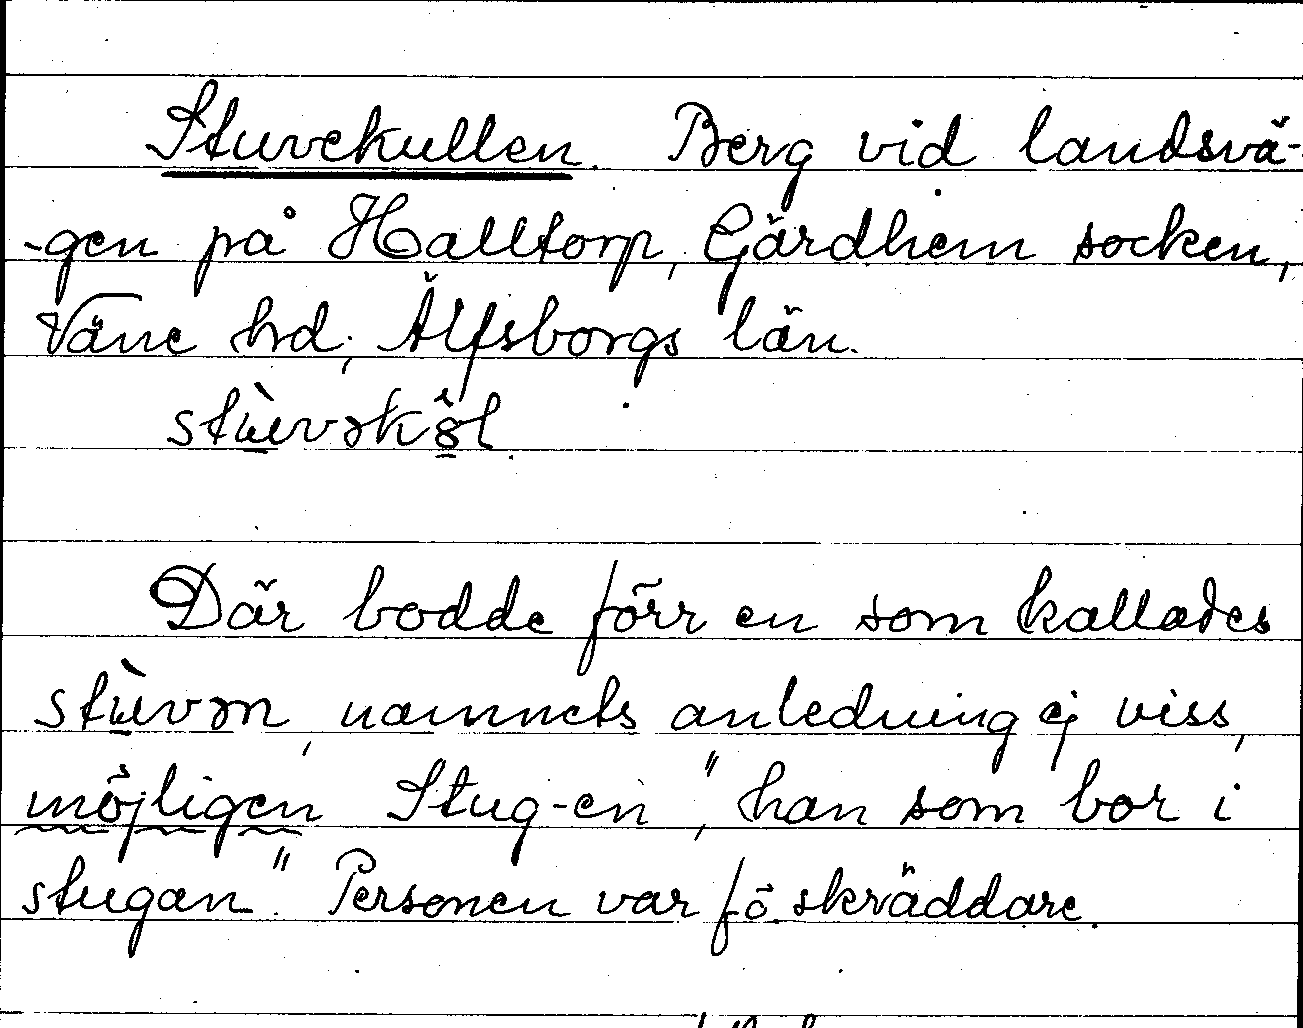 Stuvekullen. Berg vid landsvä-
-gen på Halltorp, Gärdhem socken,
Väne hd, Älfsborgs län.
stùvəkö̀l.
Där bodde förr en som kallades
stùvən, namnets anledning ej viss,
möjligen Stug-en, "han som bor i
stugan". Personen var fö. skräddare.